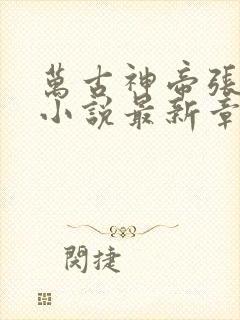 萬古神帝張
小說最新章
閔捷